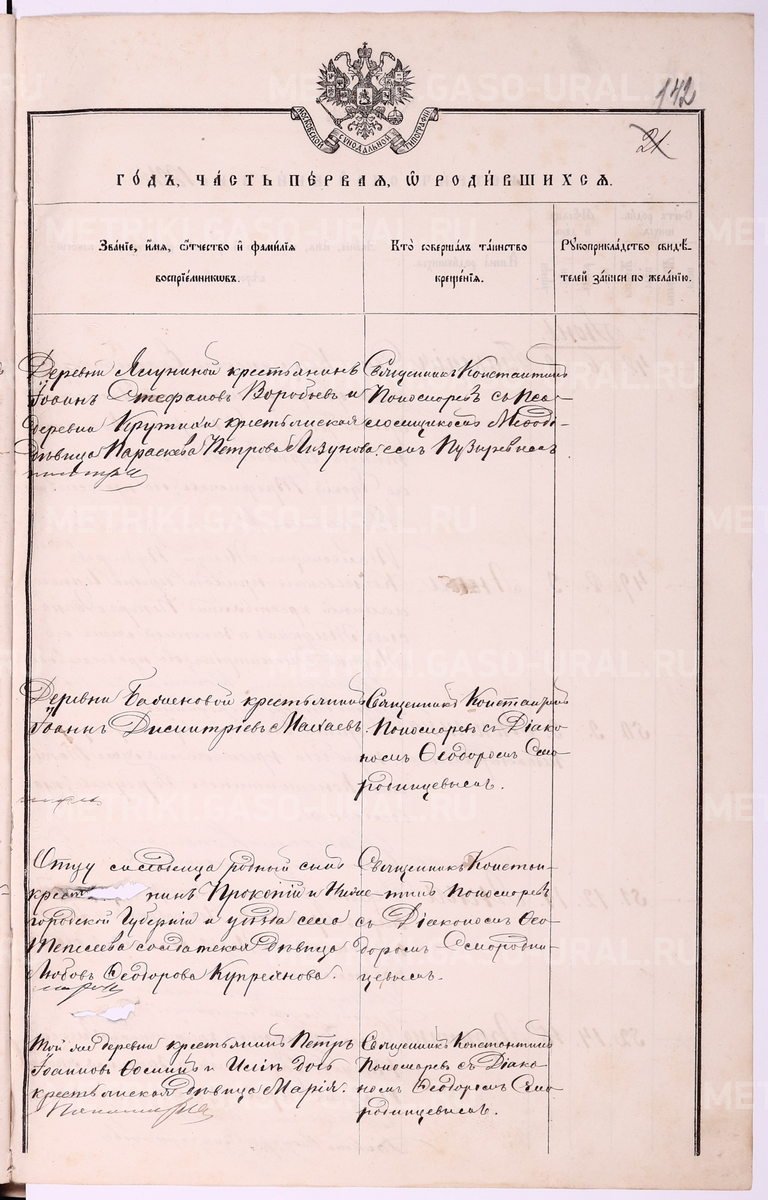 142
21
МОСКОВСКОЙ СѴНОДАЛЬНОЙ ТИПОГРАФІИ
ГО́ДЪ, ЧА́СТЬ ПЕ́РВАЯ, Ѡ҆ РОДИ́ВШИХСѦ.
Зва́нїе, и҆́мѧ, ѻ҆́тчество и҆ фами́лїѧ
воспрїе́мникѡвъ.
Кто̀ соверша́лъ та́инство
креще́нїѧ.
Рꙋкоприкла́дство свидѣ́-
телей за́писи по жела́нїю.
Деревни крестьянинъ
Іоаннъ Стефановъ Воробьевъ и
деревни Крутихи крестьянская
дѣвица Параскева Петрова Лизунова.
Священникъ Константинъ
Пономаревъ съ Пса-
ломщикомъ Меѳоді-
емъ Пузыревымъ
Деревни крестьянинъ
Іоаннъ Димитріевъ Махаевъ
Священникъ Константинъ
Пономаревъ съ Діако-
номъ Ѳеодоромъ Смо-
родинцевымъ.
Отцу родный сынъ
Прокопій и Ниже-
городской Губерніи и уѣзда села
солдатская дѣвица
Любовь Ѳеодорова Купреянова.
Священникъ Констан-
тинъ Пономаревъ
съ Діакономъ Ѳео-
доромъ Смородин-
цевымъ.
Той же деревни крестьянинъ Петръ
Іоанновъ Ѳоминъ и дочь
крестьянская дѣвица Марія.
Священникъ Константинъ
Пономаревъ съ Діако-
номъ Ѳеодоромъ Смо-
родинцевымъ.
METRIKI.GASO-URAL.RU